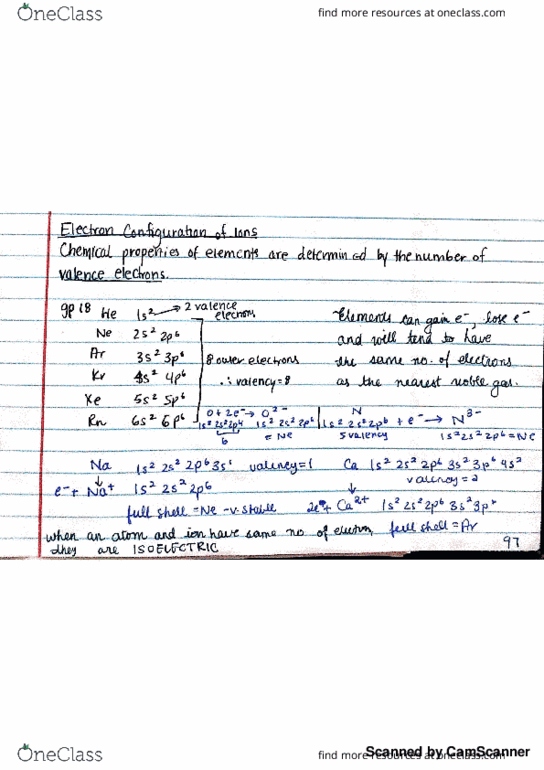 OneClass find more resources at oneclass.com
Electron Configuration of Ions
Chemical properties of elements are determined by the number of
valence electrons.
gp 18 He 1s² → 2 valence electrons
Ne 2s² 2p⁶
Ar 3s² 3p⁶
Kr 4s² 4p⁶
Xe 5s² 5p⁶
Rn 6s² 6p⁶
8 outer electrons
∴ valency = 8
Elements can gain e⁻, lose e⁻
and will tend to have
the same no. of electrons
as the nearest noble gas.
O + 2e⁻ → O²⁻
1s² 2s² 2p⁴ 1s² 2s² 2p⁶
6 = Ne
N
1s² 2s² 2p⁶ + e⁻ → N³⁻
5 valency 1s² 2s² 2p⁶ = Ne
Na 1s² 2s² 2p⁶ 3s¹ valency = 1
↓
e⁻ + Na⁺ 1s² 2s² 2p⁶
full shell = Ne - v. stable
Ca 1s² 2s² 2p⁶ 3s² 3p⁶ 4s²
valency = 2
↓
2e⁻ + Ca²⁺ 1s² 2s² 2p⁶ 3s² 3p⁶
full shell = Ar
when an atom and ion have same no. of electron,
they are ISOELECTRIC
97
OneClass find more resources at oneclass.com
Scanned by CamScanner